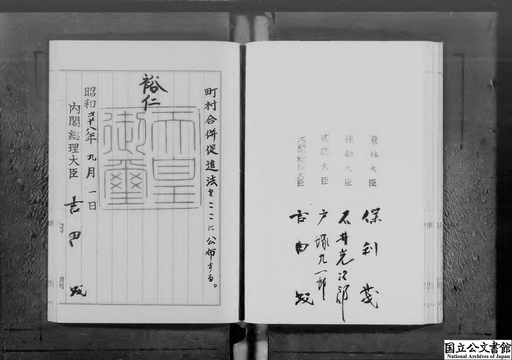 農林大臣 保利茂
運輸大臣 石井光次郎
建設大臣 戸塚九一郎
内閣総理大臣 吉田茂
町村合併促進法をここに公布する。
裕仁
天皇御璽
昭和二十八年九月一日
内閣総理大臣 吉田茂
国立公文書館
National Archives of Japan